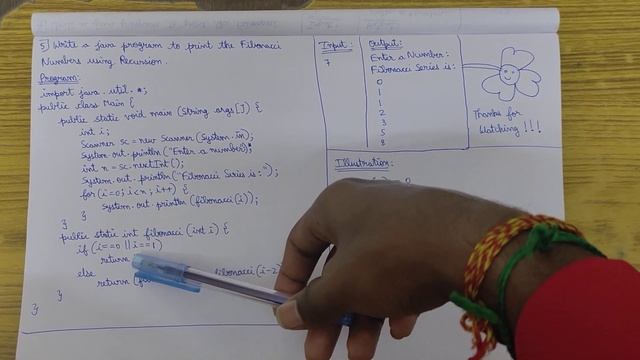 5) Write a Java program to print the Fibonacci
Numbers using Recursion.
Program:
import java.util.*;
public class Main {
public static void main (String args[]) {
int i;
Scanner sc = new Scanner (System.in);
System.out.println ("Enter a number");
int n = sc.nextInt ();
System.out.println ("Fibonacci Series is:");
for (i=0; i<n; i++) {
System.out.println (fibonacci (i));
}
}
public static int fibonacci (int i) {
if (i==0 || i==1)
return
else
return fibonacci (i-2)
}
}
Input:
7
Output:
Enter a Number:
Fibonacci Series is:
0
1
1
2
3
5
8
Thanks for
Watching !!!
Illustration:
= 0